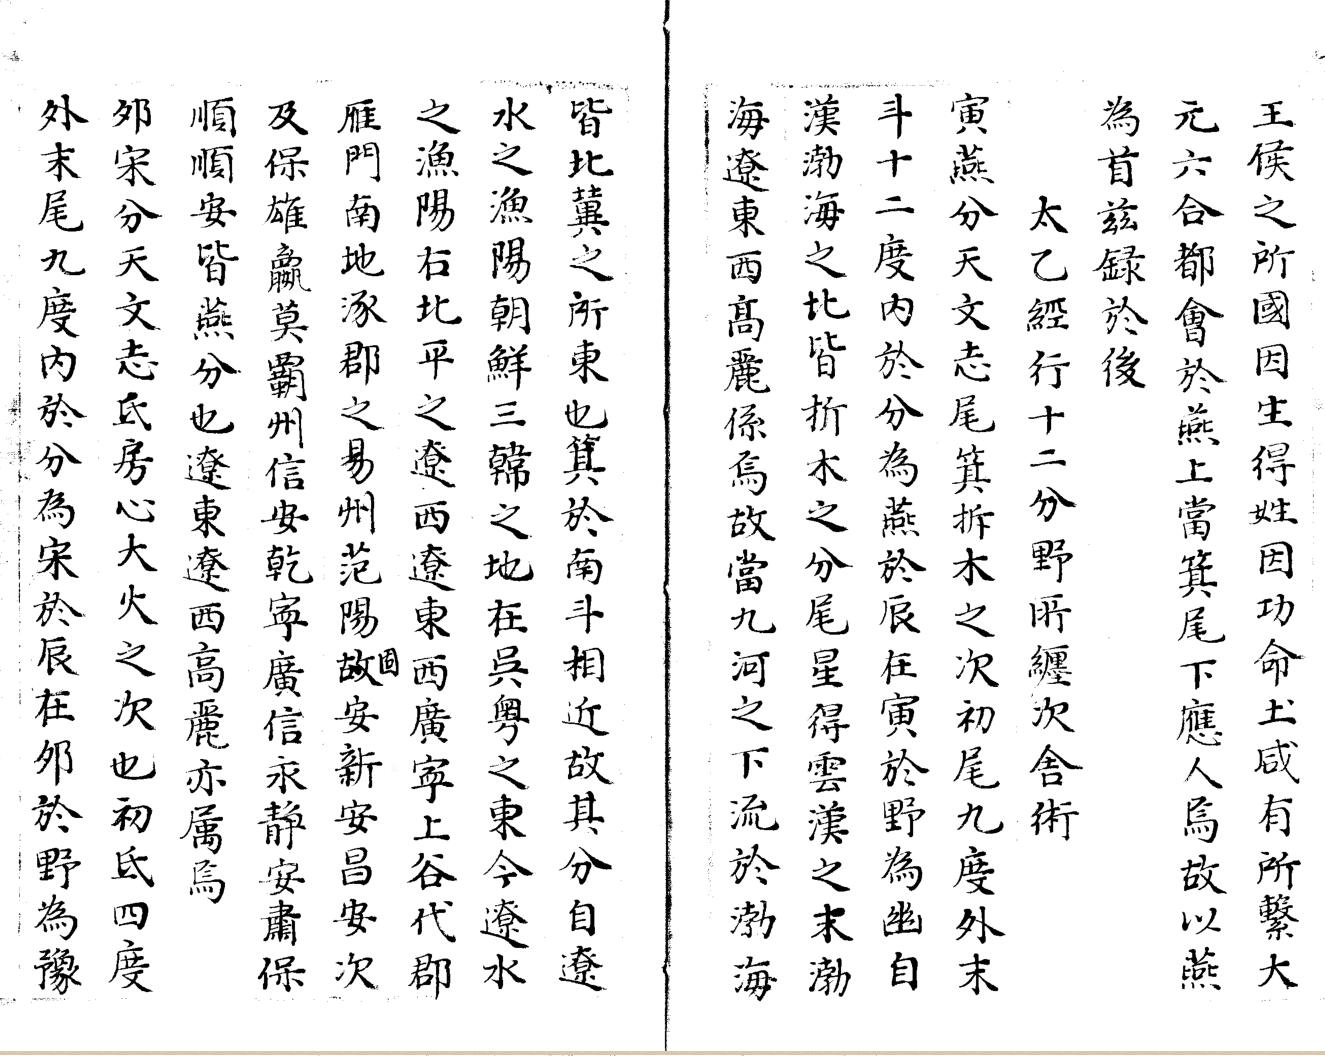 王侯之所國因生得姓因功命土咸有所繫大
元六合都會於燕上當箕尾下應人焉故以燕
為首茲録於後
太乙經行十二分野所纏次舍術
寅燕分天文志尾箕拆木之次初尾九度外末
斗十二度內於分為燕於辰在寅於野為幽自
漢渤海之北皆折木之分尾星得雲漢之末渤
海遼東西髙麗係焉故當九河之下流於渤海
皆北冀之所東也箕於南斗相近故其分自遼
水之漁陽朝鮮三韓之地在吳粵之東今遼水
之漁陽右北平之遼西遼東西廣寧上谷代郡
雁門南地涿郡之易州范陽故固安新安昌安次
及保雄贏莫霸州信安乾寧廣信永靜安肅保
順順安皆燕分也遼東遼西高麗亦属焉
夘宋分天文志氐房心大火之次也初氐四度
外末尾九度內於分為宋於辰在夘於野為豫